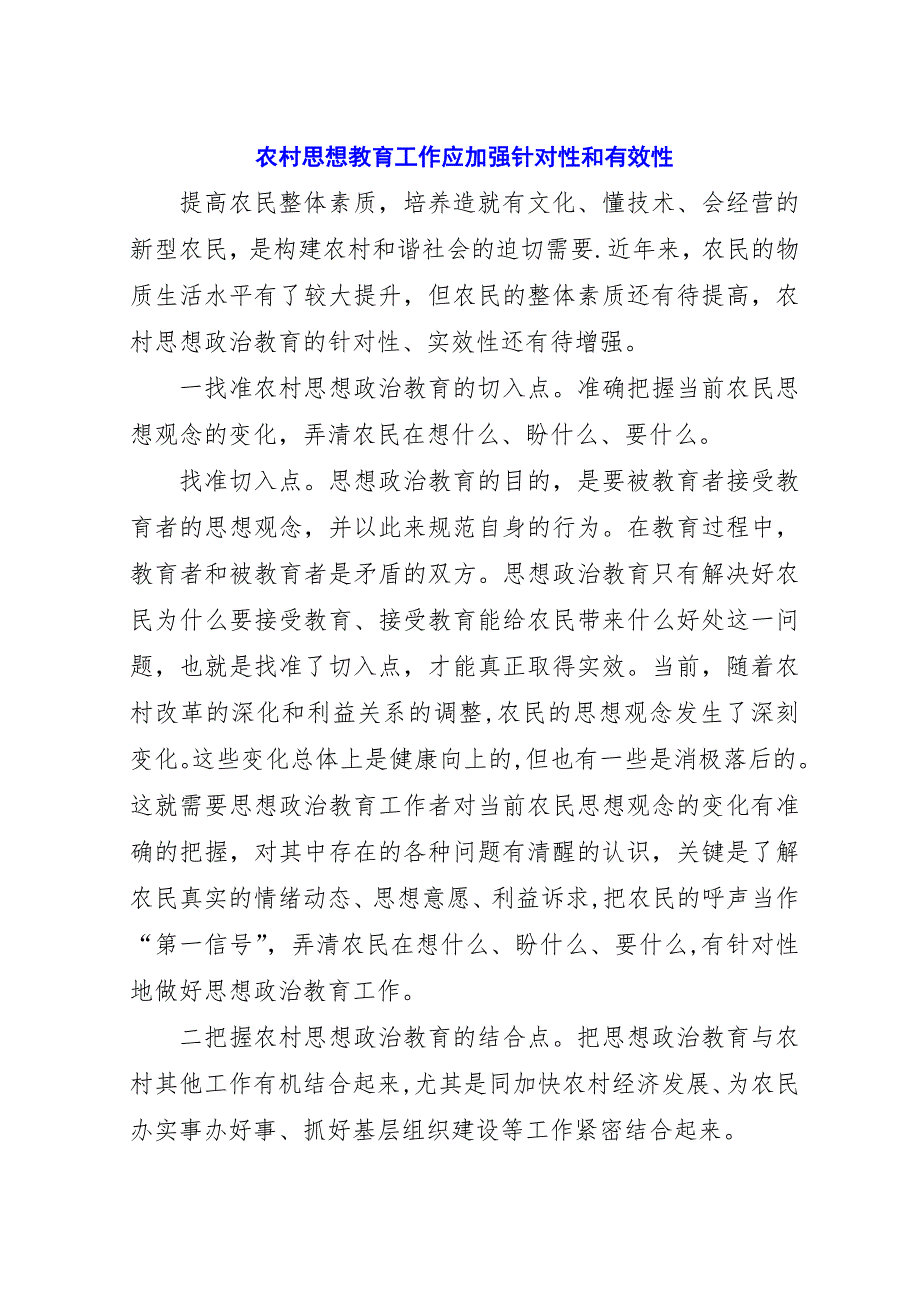 农村思想教育工作应加强针对性和有效性
提高农民整体素质，培养造就有文化、懂技术、会经营的
新型农民，是构建农村和谐社会的迫切需要.近年来，农民的物
质生活水平有了较大提升，但农民的整体素质还有待提高，农
村思想政治教育的针对性、实效性还有待增强。
一找准农村思想政治教育的切入点。准确把握当前农民思
想观念的变化，弄清农民在想什么、盼什么、要什么。
找准切入点。思想政治教育的目的，是要被教育者接受教
育者的思想观念，并以此来规范自身的行为。在教育过程中，
教育者和被教育者是矛盾的双方。思想政治教育只有解决好农
民为什么要接受教育、接受教育能给农民带来什么好处这一问
题，也就是找准了切入点，才能真正取得实效。当前，随着农
村改革的深化和利益关系的调整,农民的思想观念发生了深刻
变化。这些变化总体上是健康向上的,但也有一些是消极落后的。
这就需要思想政治教育工作者对当前农民思想观念的变化有准
确的把握，对其中存在的各种问题有清醒的认识，关键是了解
农民真实的情绪动态、思想意愿、利益诉求,把农民的呼声当作
“第一信号”，弄清农民在想什么、盼什么、要什么,有针对性
地做好思想政治教育工作。
二把握农村思想政治教育的结合点。把思想政治教育与农
村其他工作有机结合起来,尤其是同加快农村经济发展、为农民
办实事办好事、抓好基层组织建设等工作紧密结合起来。